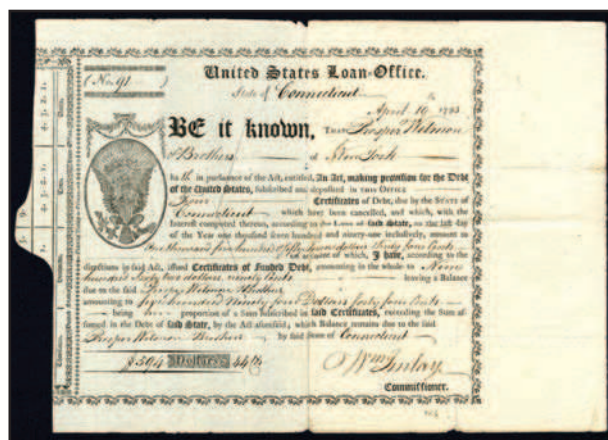 (No. 91)
United States Loan-Office.
State of Connecticut
April 16 1793
BE it known, THAT Prosper Wetmore
& Brothers of New York
ha th in pursuance of the Act, entitled, An Act, making provision for the Debt
of the United States, subscribed and deposited in THIS OFFICE
Four Certificates of Debt, due by the STATE OF
Connecticut which have been cancelled, and which, with the
Interest computed thereon, according to the Laws of said State, to the last day
of the Year one thousand seven hundred and ninety-one inclusively, amount to
One thousand five hundred fifty seven dollars thirty four Cents
on account of which, I have, according to the
directions in said Act, issued Certificates of Funded Debt, amounting in the whole to Nine
hundred sixty two dollars ninety Cents leaving a Balance
due to the said Prosper Wetmore & Brothers
amounting to five hundred Ninety four Dollars forty four Cents
being proportion of a Sum subscribed in said Certificates, exceeding the Sum as-
sumed in the Debt of said State, by the Act aforesaid, which Balance remains due to the said
Prosper Wetmore & Brothers by said State of Connecticut
$594 Dollars 44
Commissioner.